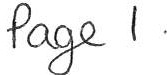 Page 1.